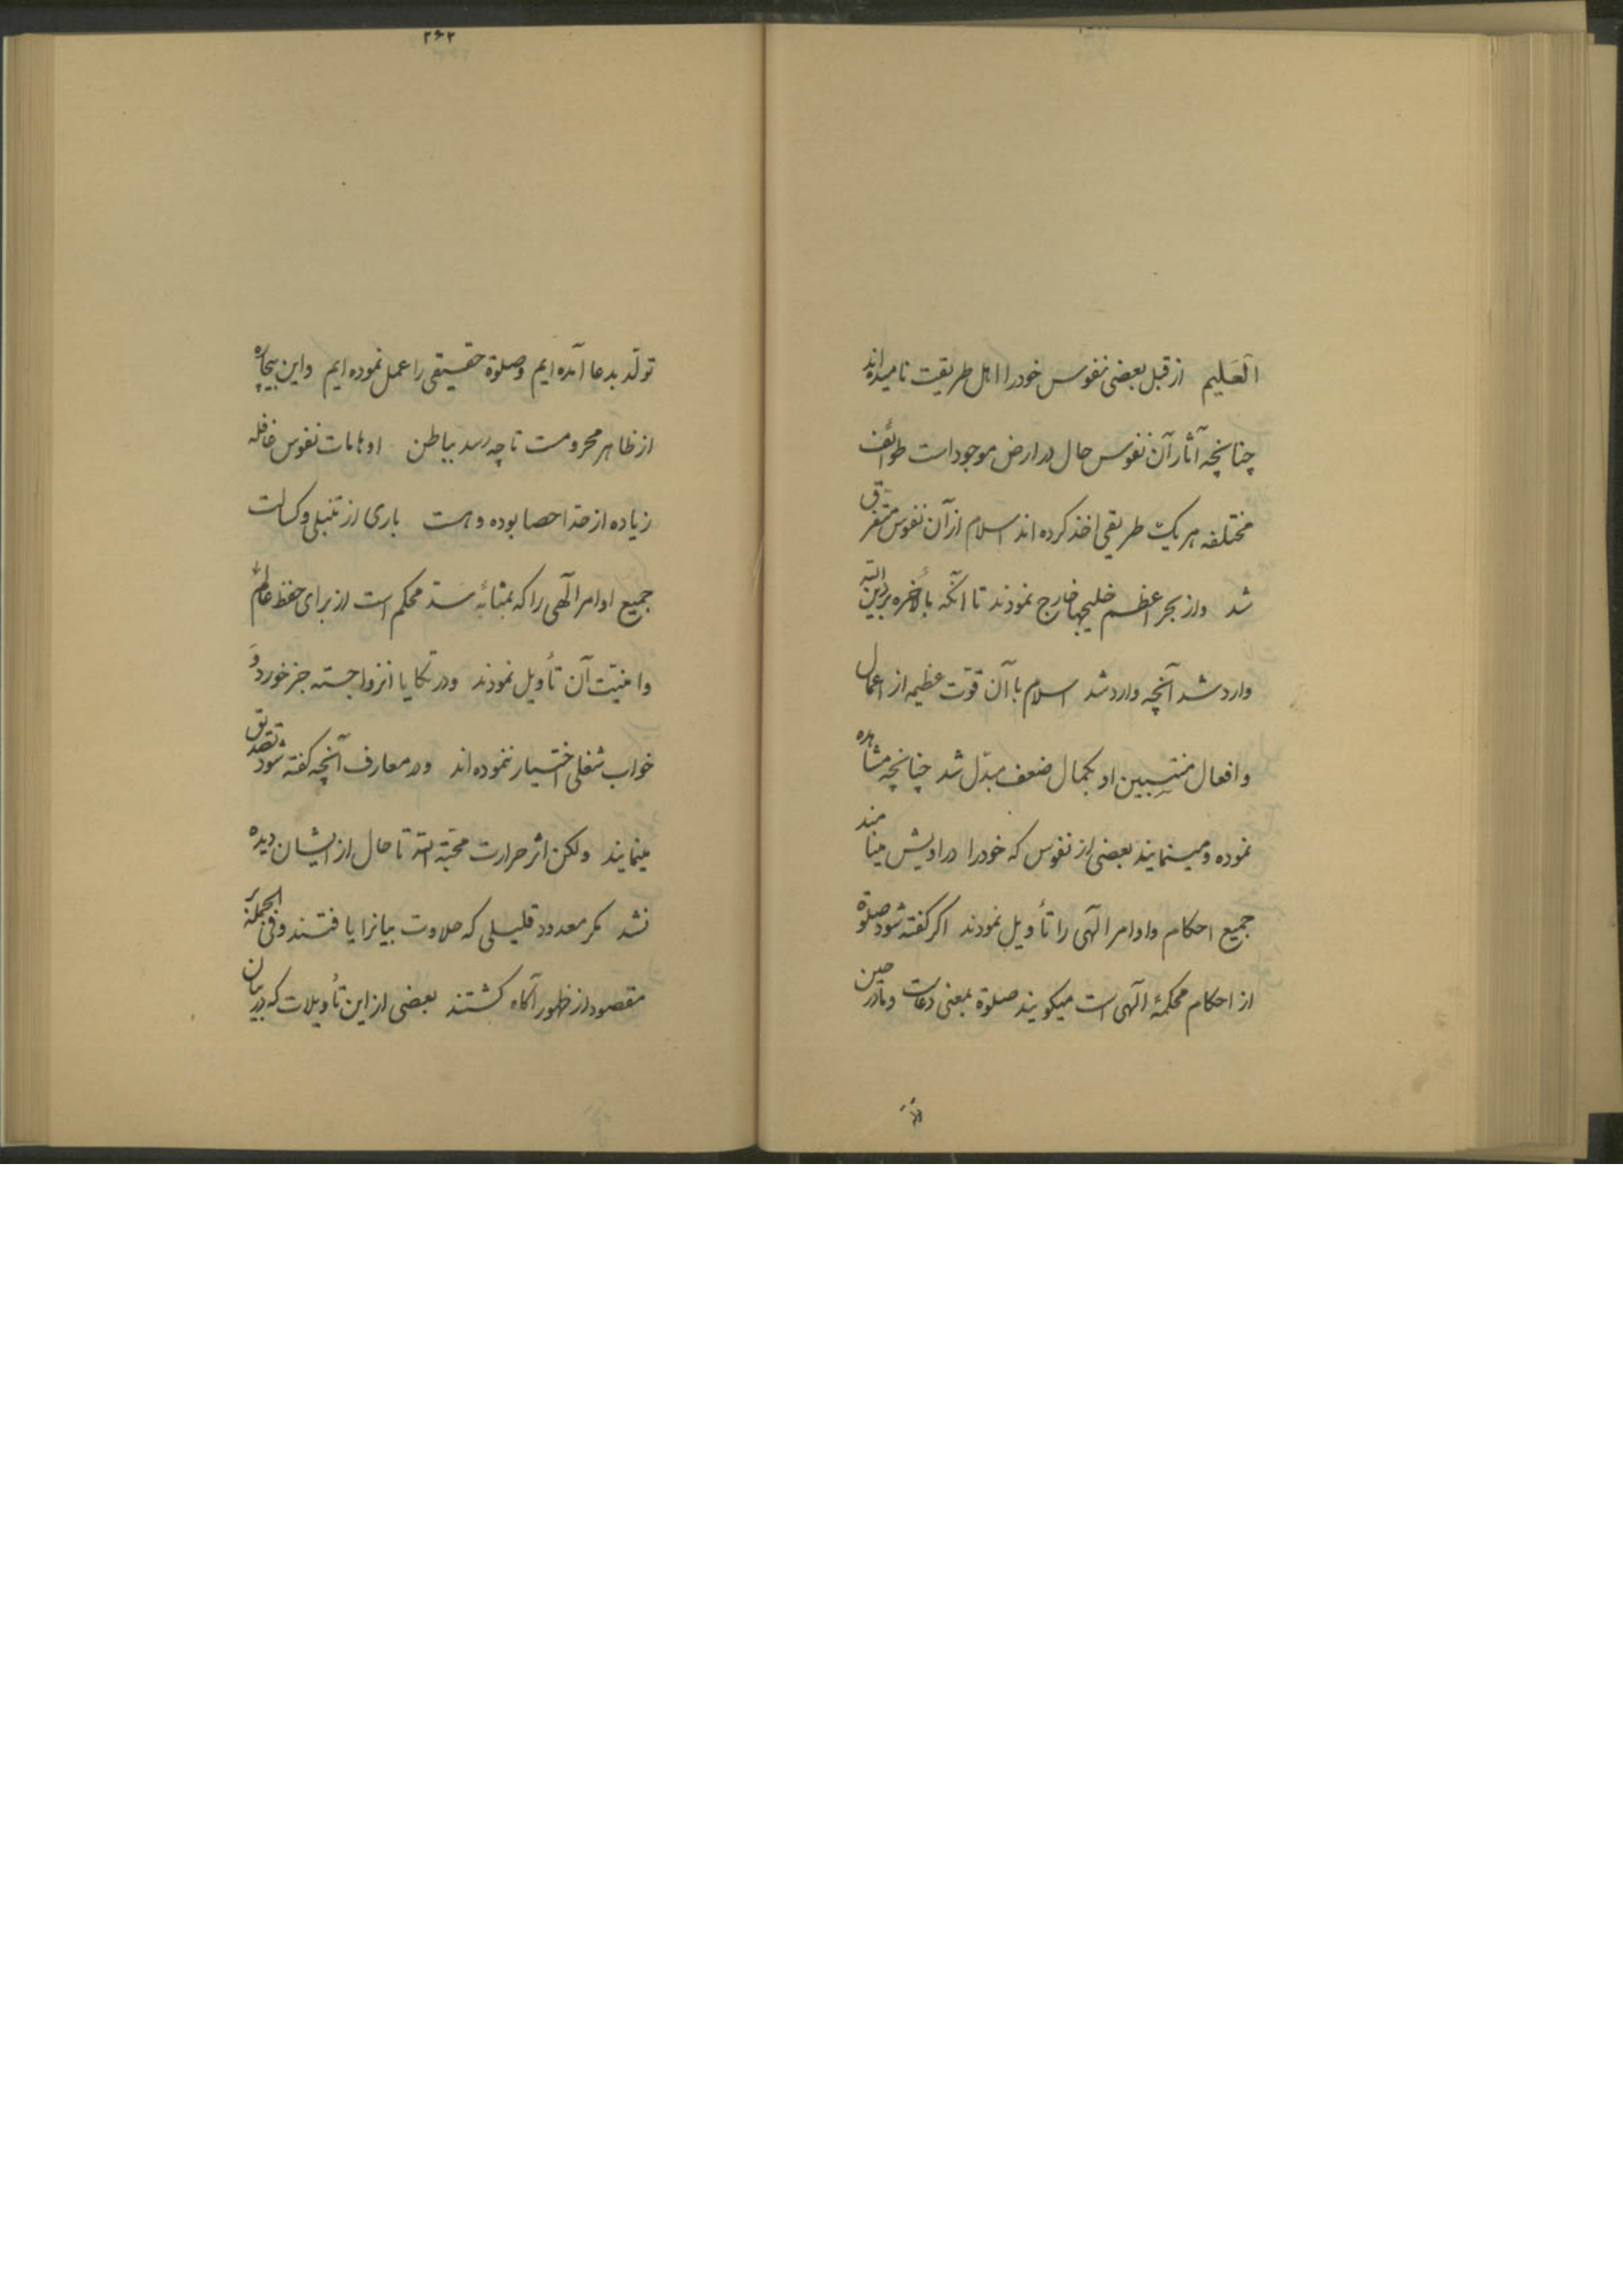 العلیم از قبل بعضی نفوس خود را اهل طریقت نامیده‌اند
چنانچه آثار آن نفوس حال در ارض موجود است طوائف
مختلفه هر یک طریقی اخذ کرده اند اسلام از آن نفوس متفرق
شد و از بحر اعظم خلیجها خارج نمودند تا آنکه بالأخره بر دین الله
وارد شد آنچه وارد شد اسلام با آن قوّت عظیمه از اعمال
و افعال منتسبین او بکمال ضعف مبدّل شد چنانچه مشاهده
نموده و مینمایند بعضی از نفوس که خود را دراویش مینامند
جمیع احکام و اوامر الٓهی را تأویل نمودند اگر گفته شود صلوة
از احکام محکمهٔ الٓهی است میگویند صلوة بمعنی دعاست و ما در حین
۲۶۲
تولّد بدعا آمده ایم و صلوة حقیقی را عمل نموده ایم و این بیچاره
از ظاهر محرومست تا چه رسد بباطن اوهامات نفوس غافله
زیاده از حدّ احصا بوده و هست باری از تنبلی و کسالت
جمیع اوامر الٓهی را که بمثابهٔ سدّ محکم است از برای حفظ عالم
و امنیّت آن تأویل نمودند و در تکایا انزوا جسته جز خورد و
خواب شغلی اختیار ننموده اند و در معارف آنچه گفته شود تصدیق
مینمایند ولکن اثر حرارت محبّة الله تا حال از ایشان دیده
نشد مگر معدود قلیلی که حلاوت بیانرا یافتند و فی الجمله بر
مقصود از ظهور آگاه گشتند بعضی از این تأویلات که در بیان